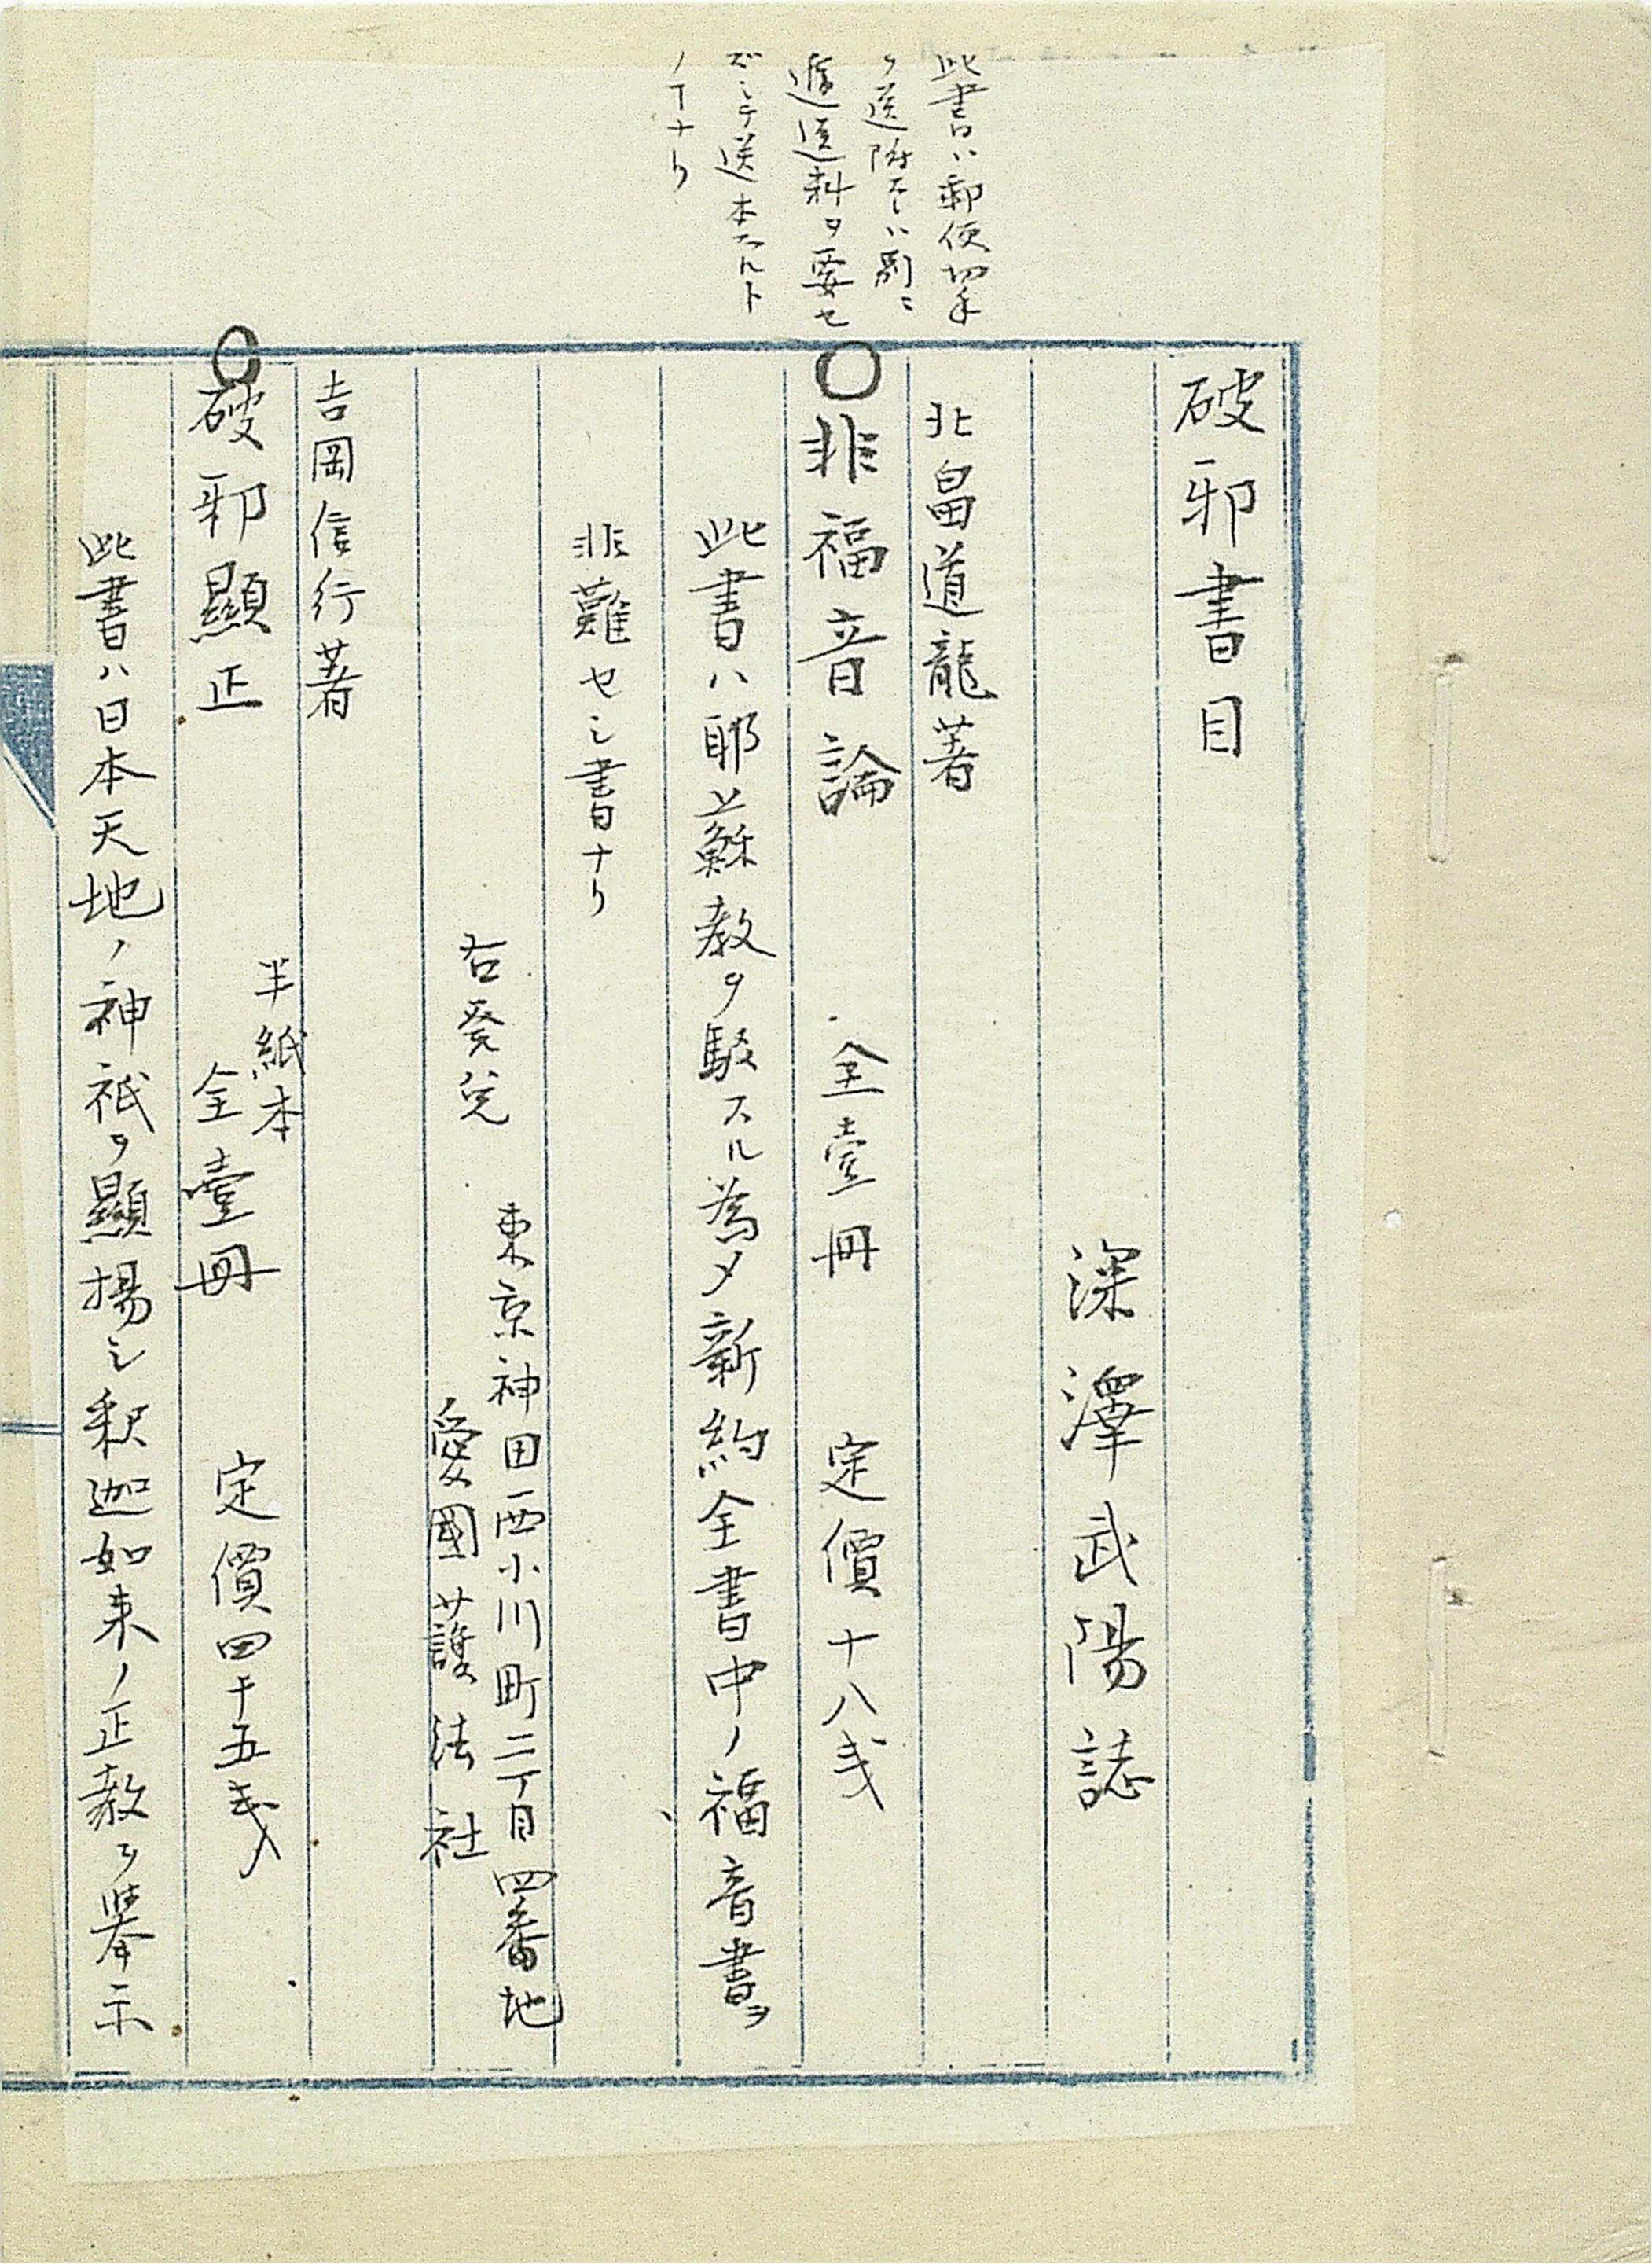 破邪書目
深澤武陽誌
北畠道龍著
此書ハ郵便切手
ヲ送附スレハ別ニ
逓送料ヲ要セ
ズシテ送本スルト
ノコナリ
〇非福音論 全壹冊 定價十八戋
此書ハ耶蘇教ヲ駁スル為メ新約全書中ノ福音書ヲ
非難セシ書ナリ
右発兌 東京神田西小川町二丁目四番地
愛國護法社
吉岡信行著
半紙本
〇破邪顯正 全壹冊 定價四十五戋
此書ハ日本天地ノ神祇ヲ顯揚シ釈迦如来ノ正教ヲ挙示